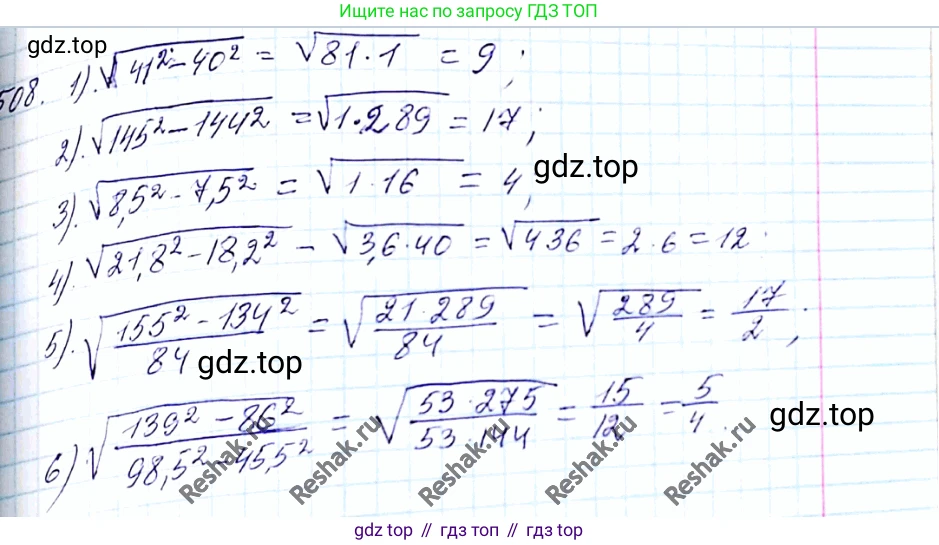 Ищите нас по запросу ГДЗ ТОП
gdz.top
508. 1). √(41² - 40²) = √(81 · 1) = 9;
2). √(145² - 144²) = √(1 · 289) = 17;
gdz.top
3). √(8,5² - 7,5²) = √(1 · 16) = 4,
4). √(21,8² - 18,2²) - √(3,6 · 40) = √(436) = 2 · 6 = 12.
5). √((155² - 134²)/84) = √((21 · 289)/84) = √(289/4) = 17/2;
gdz.top
6) √((139² - 86²)/(98,5² - 45,5²)) = √((53 · 275)/(53 · 144)) = 15/12 = 5/4.
gdz.top
Reshak.ru
Reshak.ru
Reshak.ru
Reshak.ru
Reshak.ru
gdz.top // гдз топ // гдз top